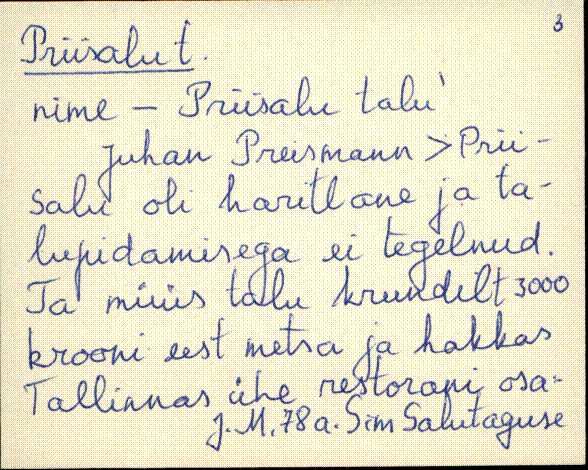 3
Priisalu t.
nime – Priisalu talu'
Juhan Preismann > Prii-
salu oli haritlane ja ta-
lupidamisega ei tegelnud.
Ta müüs talu krundilt 3000
krooni eest metsa ja hakkas
Tallinnas ühe restorani osa-
J. M, 78 a. Sim Salutaguse